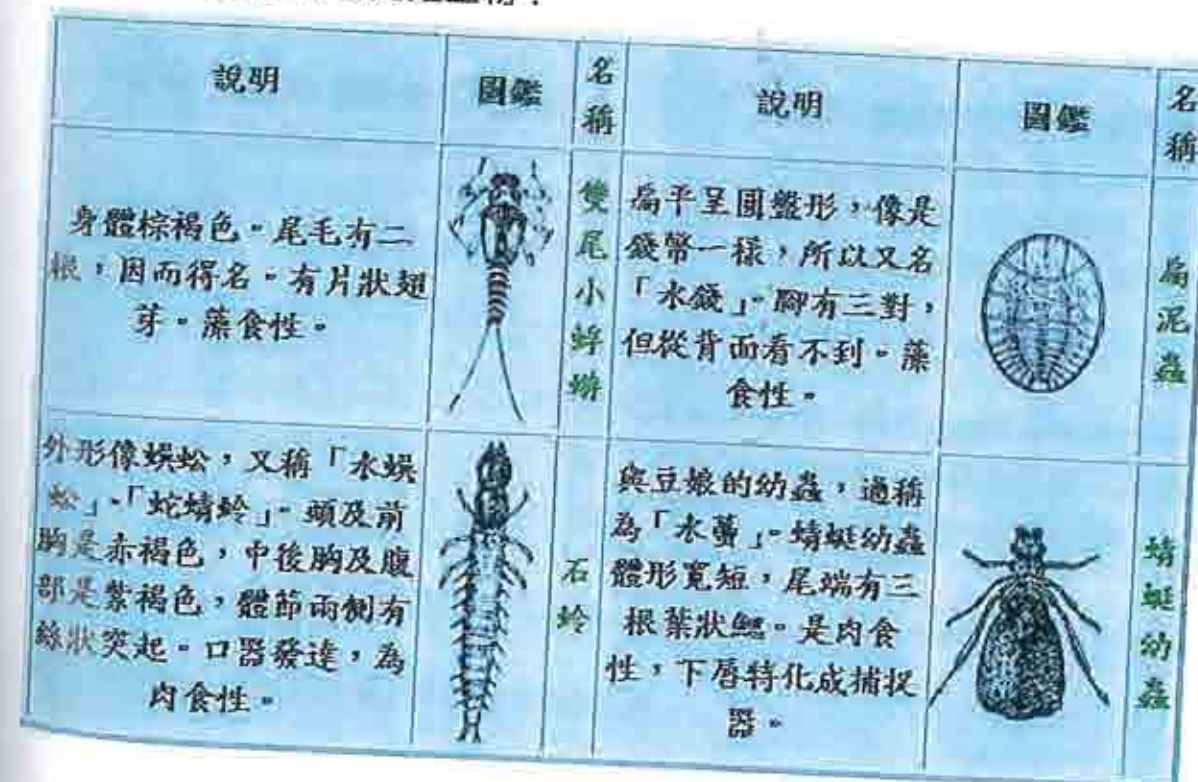 說明
圖鑑
名稱
說明
圖鑑
名稱
身體棕褐色。尾毛有二
根，因而得名。有片狀翅
芽。藻食性。
雙尾小蜉蝣
扁平呈圓盤形，像是
錢幣一樣，所以又名
「水錢」。腳有三對，
但從背面看不到。藻
食性。
扁泥蟲
外形像蜈蚣，又稱「水蜈
蚣」、「蛇蜻蛉」。頭及前
胸是赤褐色，中後胸及腹
部是紫褐色，體節兩側有
絲狀突起。口器發達，為
肉食性。
石蛉
與豆娘的幼蟲，通稱
為「水蠆」。蜻蜓幼蟲
體形寬短，尾端有三
根葉狀鰓。是肉食
性，下唇特化成捕捉
器。
蜻蜓幼蟲